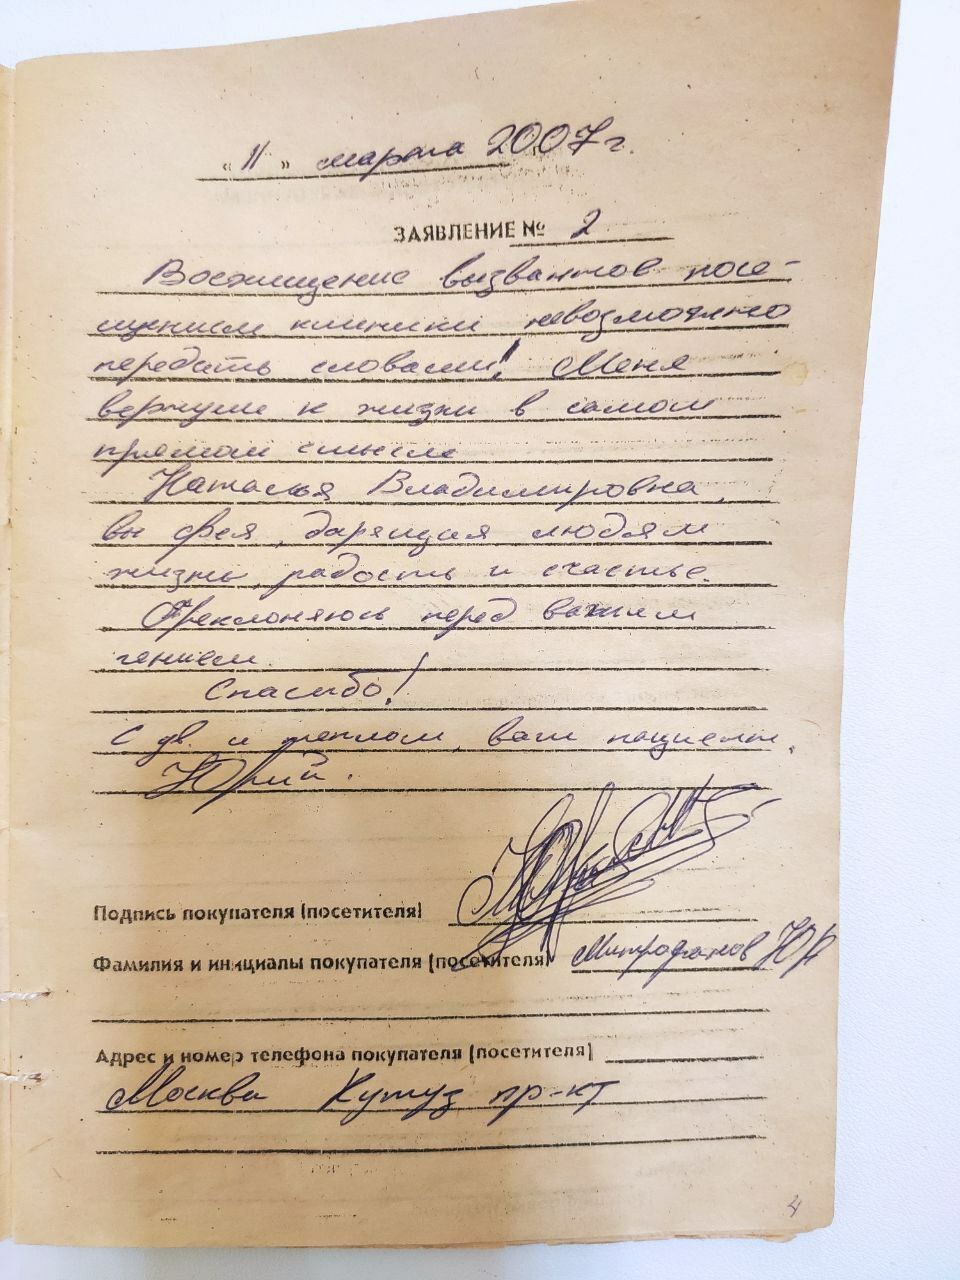 « 11 » марта 2007 г.
ЗАЯВЛЕНИЕ № 2
Восхищение вызванное посе-
щением клиники невозможно
передать словами! Меня
вернули к жизни в самом
прямом смысле
Наталья Владимировна,
вы фея, дарящая людям
жизнь, радость и счастье.
Преклоняюсь перед вашим
гением.
Спасибо!
С ув. и теплом, ваш пациент,
Юрий.
Подпись покупателя (посетителя)
Фамилия и инициалы покупателя (посетителя) Митрофанов Ю
Адрес и номер телефона покупателя (посетителя)
Москва Кутуз пр-кт
4